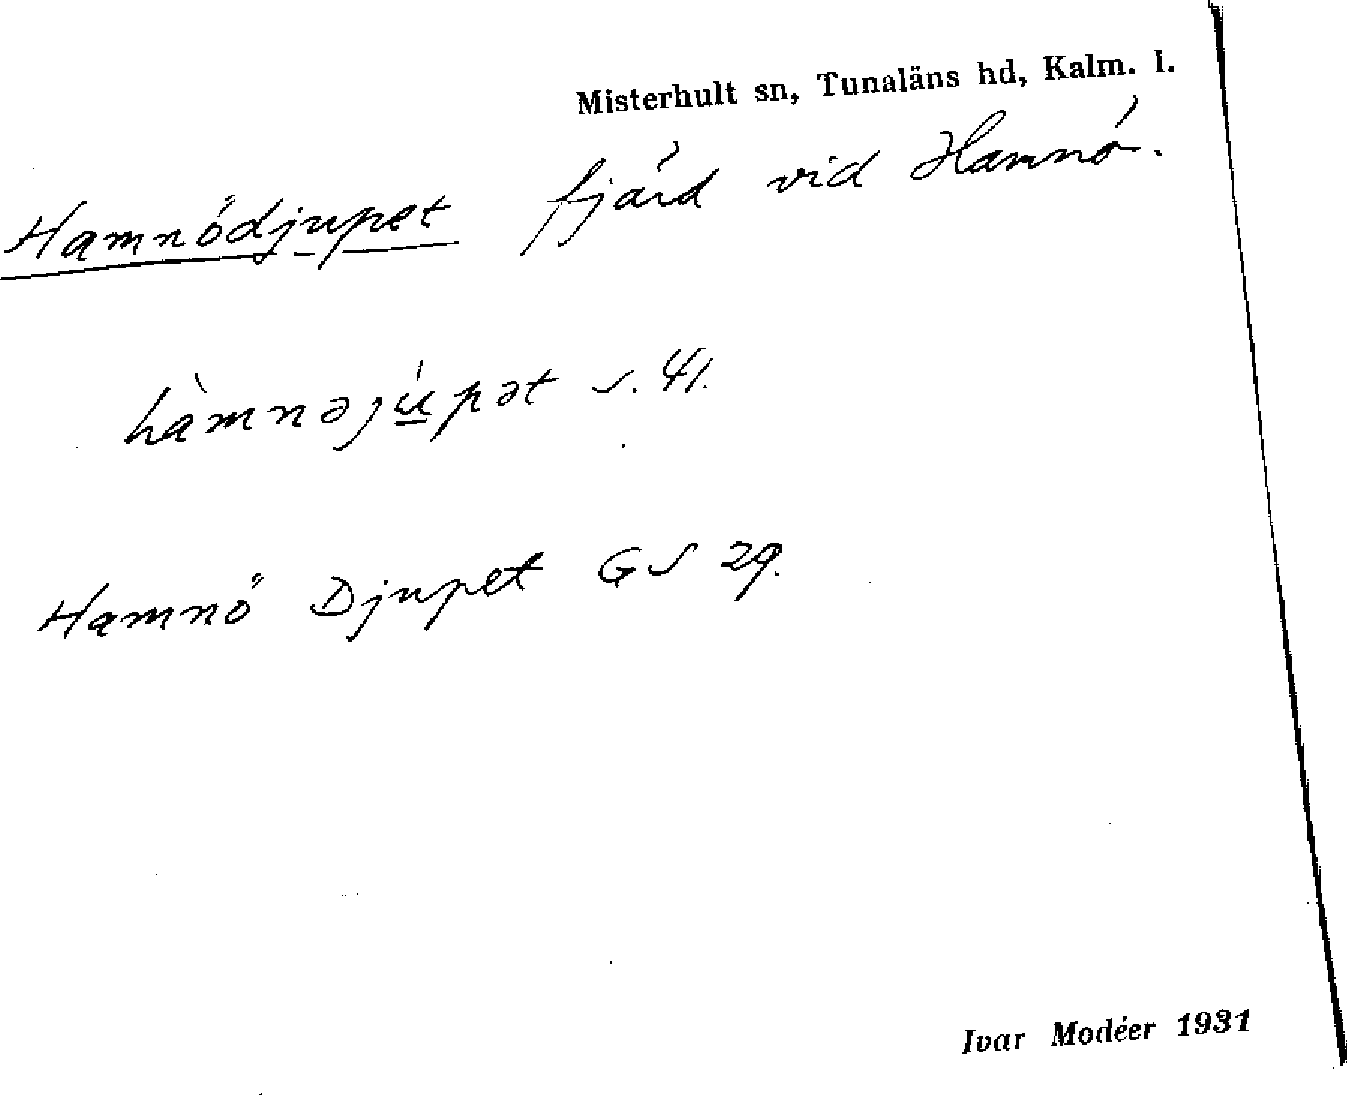 Misterhult sn, Tunaläns hd, Kalm. l.
Hamnödjupet fjärd vid Hamnö.
hàmnəjúpət s. 41.
Hamnö Djupet GS 29.
Ivar Modéer 1931